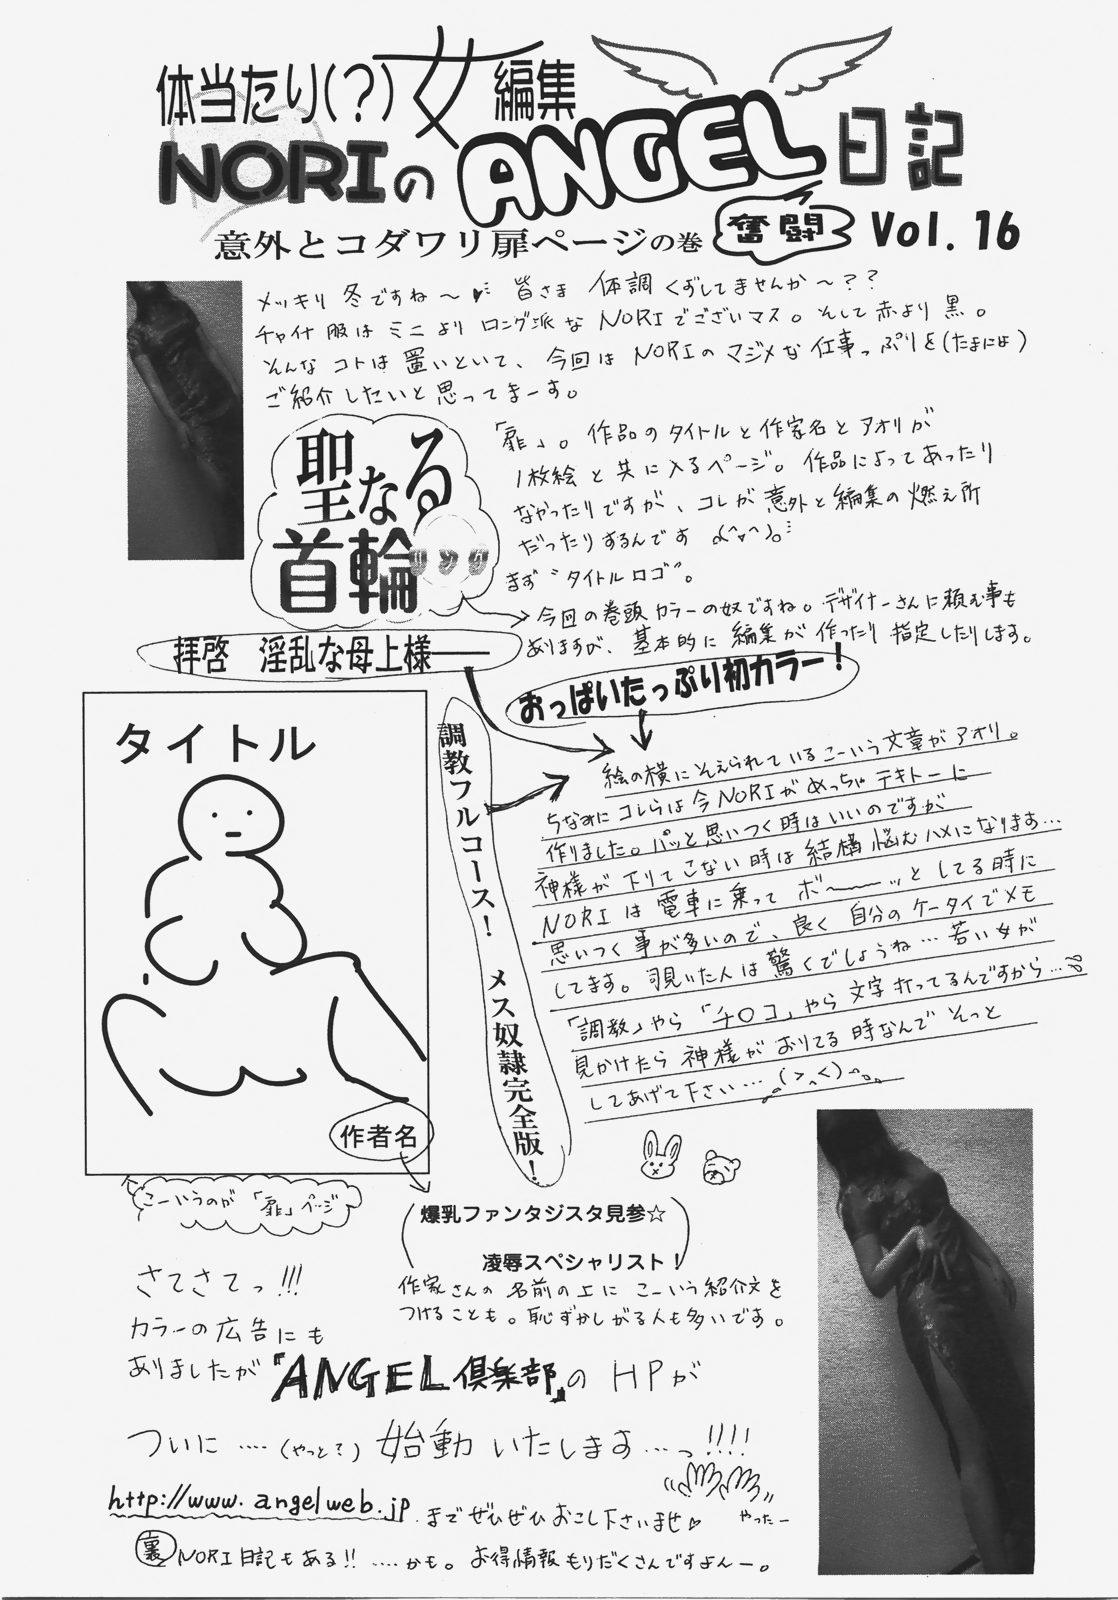 体当たり(?)女編集
NORIのANGEL日記
意外とコダワリ扉ページの巻
奮闘
Vol. 16
メッキリ冬ですね〜 皆さま 体調くずしてませんか〜??
チャイナ服はミニよりロング派なNORIでございマス。そして赤より黒。
そんなコトは置いといて、今回はNORIのマジメな仕事っぷりを(たまにはよ)
ご紹介したいと思ってまーす。
聖なる
首輪
「扉」。作品のタイトルと作家名とアオリが
1枚絵と共に入るページ。作品によってあったり
なかったりですが、コレが意外と編集の燃え所
だったりするんです
まず"タイトルロゴ"。
今回の巻頭カラーの奴ですね。デザイナーさんに頼む事も
ありますが、基本的に編集が作ったり指定したりします。
拝啓 淫乱な母上様――
おっぱいたっぷり初カラー!
調教フルコース! メス奴隷完全版!
絵の横にそえられているこーいう文章がアオリ。
ちなみにコレらは今NORIがめっちゃテキトーに
作りました。パッと思いつく時はいいのですが
神様が下りてこない時は結構悩むハメになります…
NORIは電車に乗ってボ〜〜ッとしてる時に
思いつく事が多いので、良く自分のケータイでメモ
してます。覗いた人は驚くでしょうね…若い女が
「調教」やら「チ〇コ」やら文字打ってるんですから…
見かけたら神様がおりてる時なんでそっと
してあげて下さい…(>_<)
タイトル
作者名
こーいうのが「扉」ページ
爆乳ファンタジスタ見参☆
凌辱スペシャリスト!
作家さんの名前の上にこーいう紹介文を
つけることも。恥ずかしがる人も多いです。
さてさてっ!!!
カラーの広告にも
ありましたが『ANGEL倶楽部』のHPが
ついに‥‥(やっと?)始動いたします…っ!!!!
http://www.angelweb.jp までぜひぜひおこし下さいませ
やったー
裏NORI日記もある!!‥‥かも。お得情報もりだくさんですよんー。